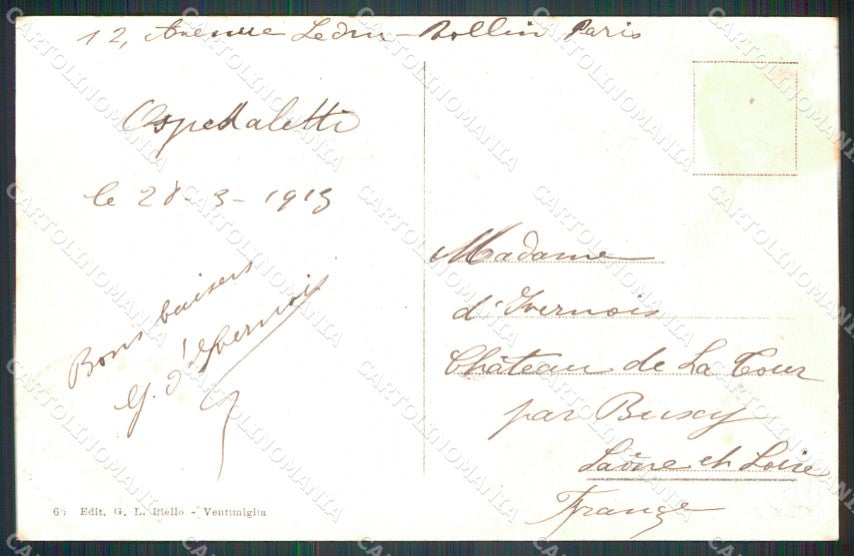 12, Avenue Ledru-Rollin Paris
Ospedaletti
le 28-3-1913
Bons baisers
G. d'Yvernois
Madame
d'Yvernois
Château de La Tour
par Buxy
Saône et Loire
France
Edit. G. L. Riello - Ventimiglia
CARTOLINOMANIA